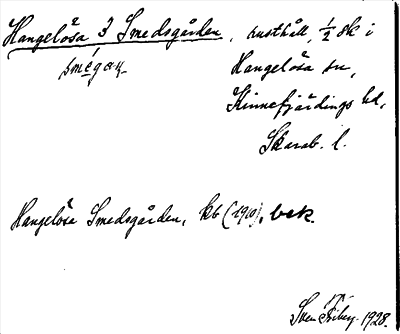 Hangelösa 3 Smedsgården, rusthåll, 1/2 sk i
Hangelösa sn,
Kinnefjärdings hd,
Skarab. l.
Hangelösa Smedsgården, kb (1910), bek.
Sven Friberg 1928.